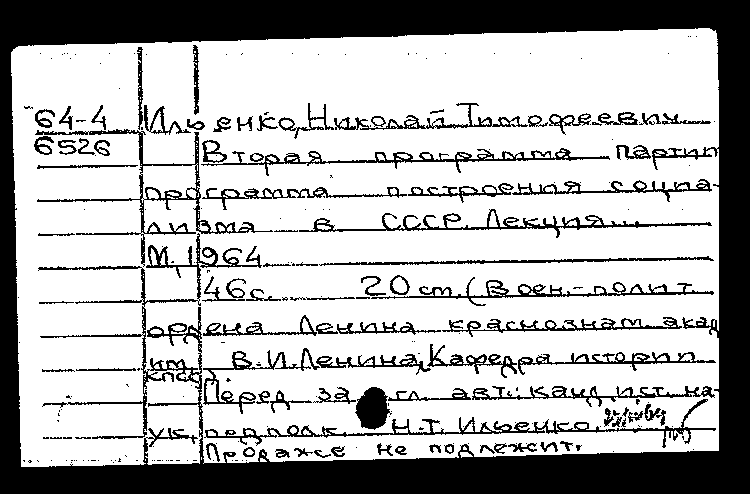 64-4 Ильенко, Николай Тимофеевич
6526 Вторая программа партии
программа построения социа-
лизма в СССР. Лекция...
М., 1964.
46с. 20 см. (Воен.-полит.
ордена Ленина краснознам. акад
им. В.И.Ленина, Кафедра истории
КПСС).
Перед загл. авт.: канд. ист. на-
ук, подполк. Н.Т. Ильенко.
Продаже не подлежит.